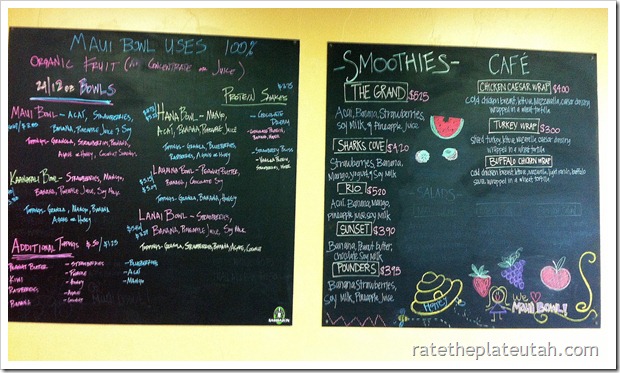 MAUI BOWL USES 100%
ORGANIC FRUIT (NO CONCENTRATE OR JUICE)
24/12oz BOWLS
PROTEIN SHAKES
MAUI BOWL - ACAI, STRAWBERRIES,
BANANA, PINEAPPLE JUICE, SOY
HANA BOWL - MANGO,
ACAI, BANANA, PINEAPPLE JUICE
TOPPINGS - GRANOLA, BLUEBERRIES,
BANANAS, AGAVE OR HONEY
BANANA, PINEAPPLE JUICE, SOY MILK
TOPPINGS - GRANOLA, MANGO, BANANA
AGAVE OR HONEY
LAHAINA BOWL - PEANUT BUTTER,
BANANA, CHOCOLATE SOY
TOPPINGS - GRANOLA, BANANA, HONEY
LANAI BOWL - STRAWBERRIES,
BANANA, PINEAPPLE JUICE, SOY MILK
ADDITIONAL TOPPINGS $.50/$1.25
PEANUT BUTTER
KIWI
RASPBERRIES
BANANA
- STRAWBERRIES
- HONEY
- AGAVE
- BLUEBERRIES
- ACAI
- MANGO
SMOOTHIES-
THE GRAND $5.25
Acai, Banana, Strawberries,
Soy Milk & Pineapple Juice
SHARKS COVE $4.20
Strawberries, Banana,
RIO $5.20
Acai, Banana, Mango,
pineapple juice, soy milk
SUNSET $3.90
Banana, Peanut Butter,
Chocolate Soy Milk
POUNDERS $3.95
Banana, Strawberries,
Soy Milk, Pineapple Juice
CAFÉ
CHICKEN CAESAR WRAP $4.00
cold chicken breast, lettuce, mozzarella, caesar dressing
wrapped in a wheat tortilla
TURKEY WRAP $3.00
sliced turkey, lettuce, mozzarella, caesar dressing
wrapped in a wheat tortilla
BUFFALO CHICKEN WRAP
cold chicken breast, lettuce, mozzarella, light mayo, buffalo
sauce wrapped in a wheat tortilla
SALADS-
Honey
We
MAUI BOWL!
ratetheplateutah.com